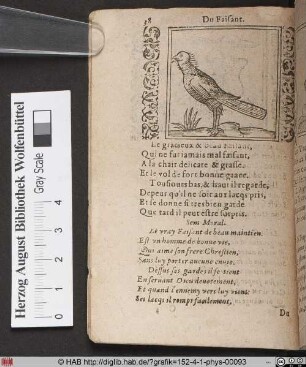 58
Du Faisant.
Le gracieux & beau Faisant,
Qui ne fut iamais mal faisant,
A la chair delicate & grasse,
Et le vol de fort bonne grace.
Tousiours bas, & haut il regarde,
De peur qu'il ne soit aux lacqs pris,
Et se donne si tresbien garde
Que tard il peut estre surpris.
Sens Moral.
Le vray Faisant de beau maintien
Est un homme de bonne vie,
Qui aime son frere Chrestien,
Sans luy porter aucune enuie.
Dessus ses gardes il se tient
En seruant Dieu deuotement,
Et quand l'ennemy vers luy vient
Ses lacqs il rompt
Du
Herzog August Bibliothek Wolfenbüttel
Gray Scale
© HAB http://diglib.hab.de/?grafik=152-4-1-phys-00093